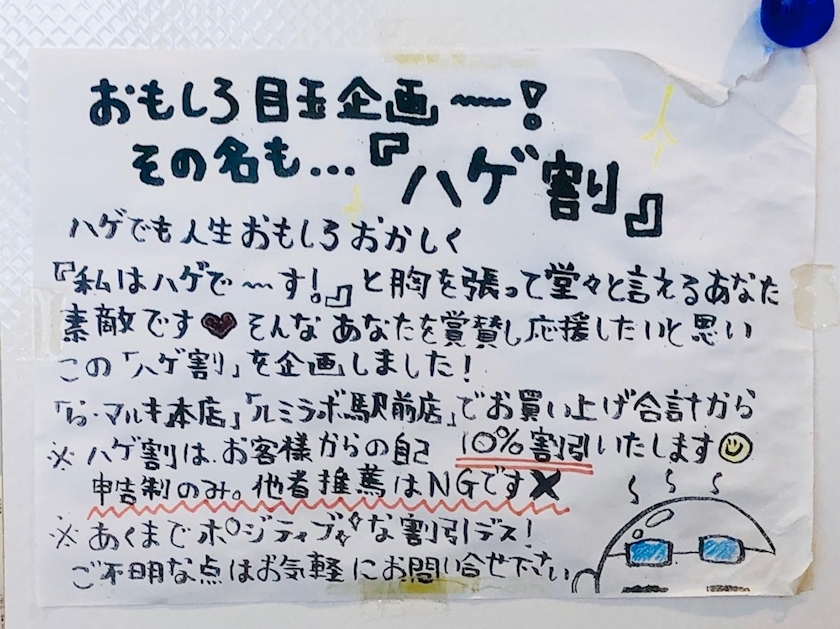 おもしろ目玉企画〜!
その名も…『ハゲ割』
ハゲでも人生おもしろおかしく
『私はハゲで〜す!』と胸を張って堂々と言えるあなた
素敵です♥そんなあなたを賞賛し応援したいと思い
この「ハゲ割」を企画しました!
「ら・マルキ本店」「ルミラボ駅前店」でお買い上げ合計から
※ハゲ割は、お客様からの自己 10%割引いたします☺
申告制のみ。他者推薦はNGです✖
※あくまでポジティブな割引デス!
ご不明な点はお気軽にお問い合せ下さい